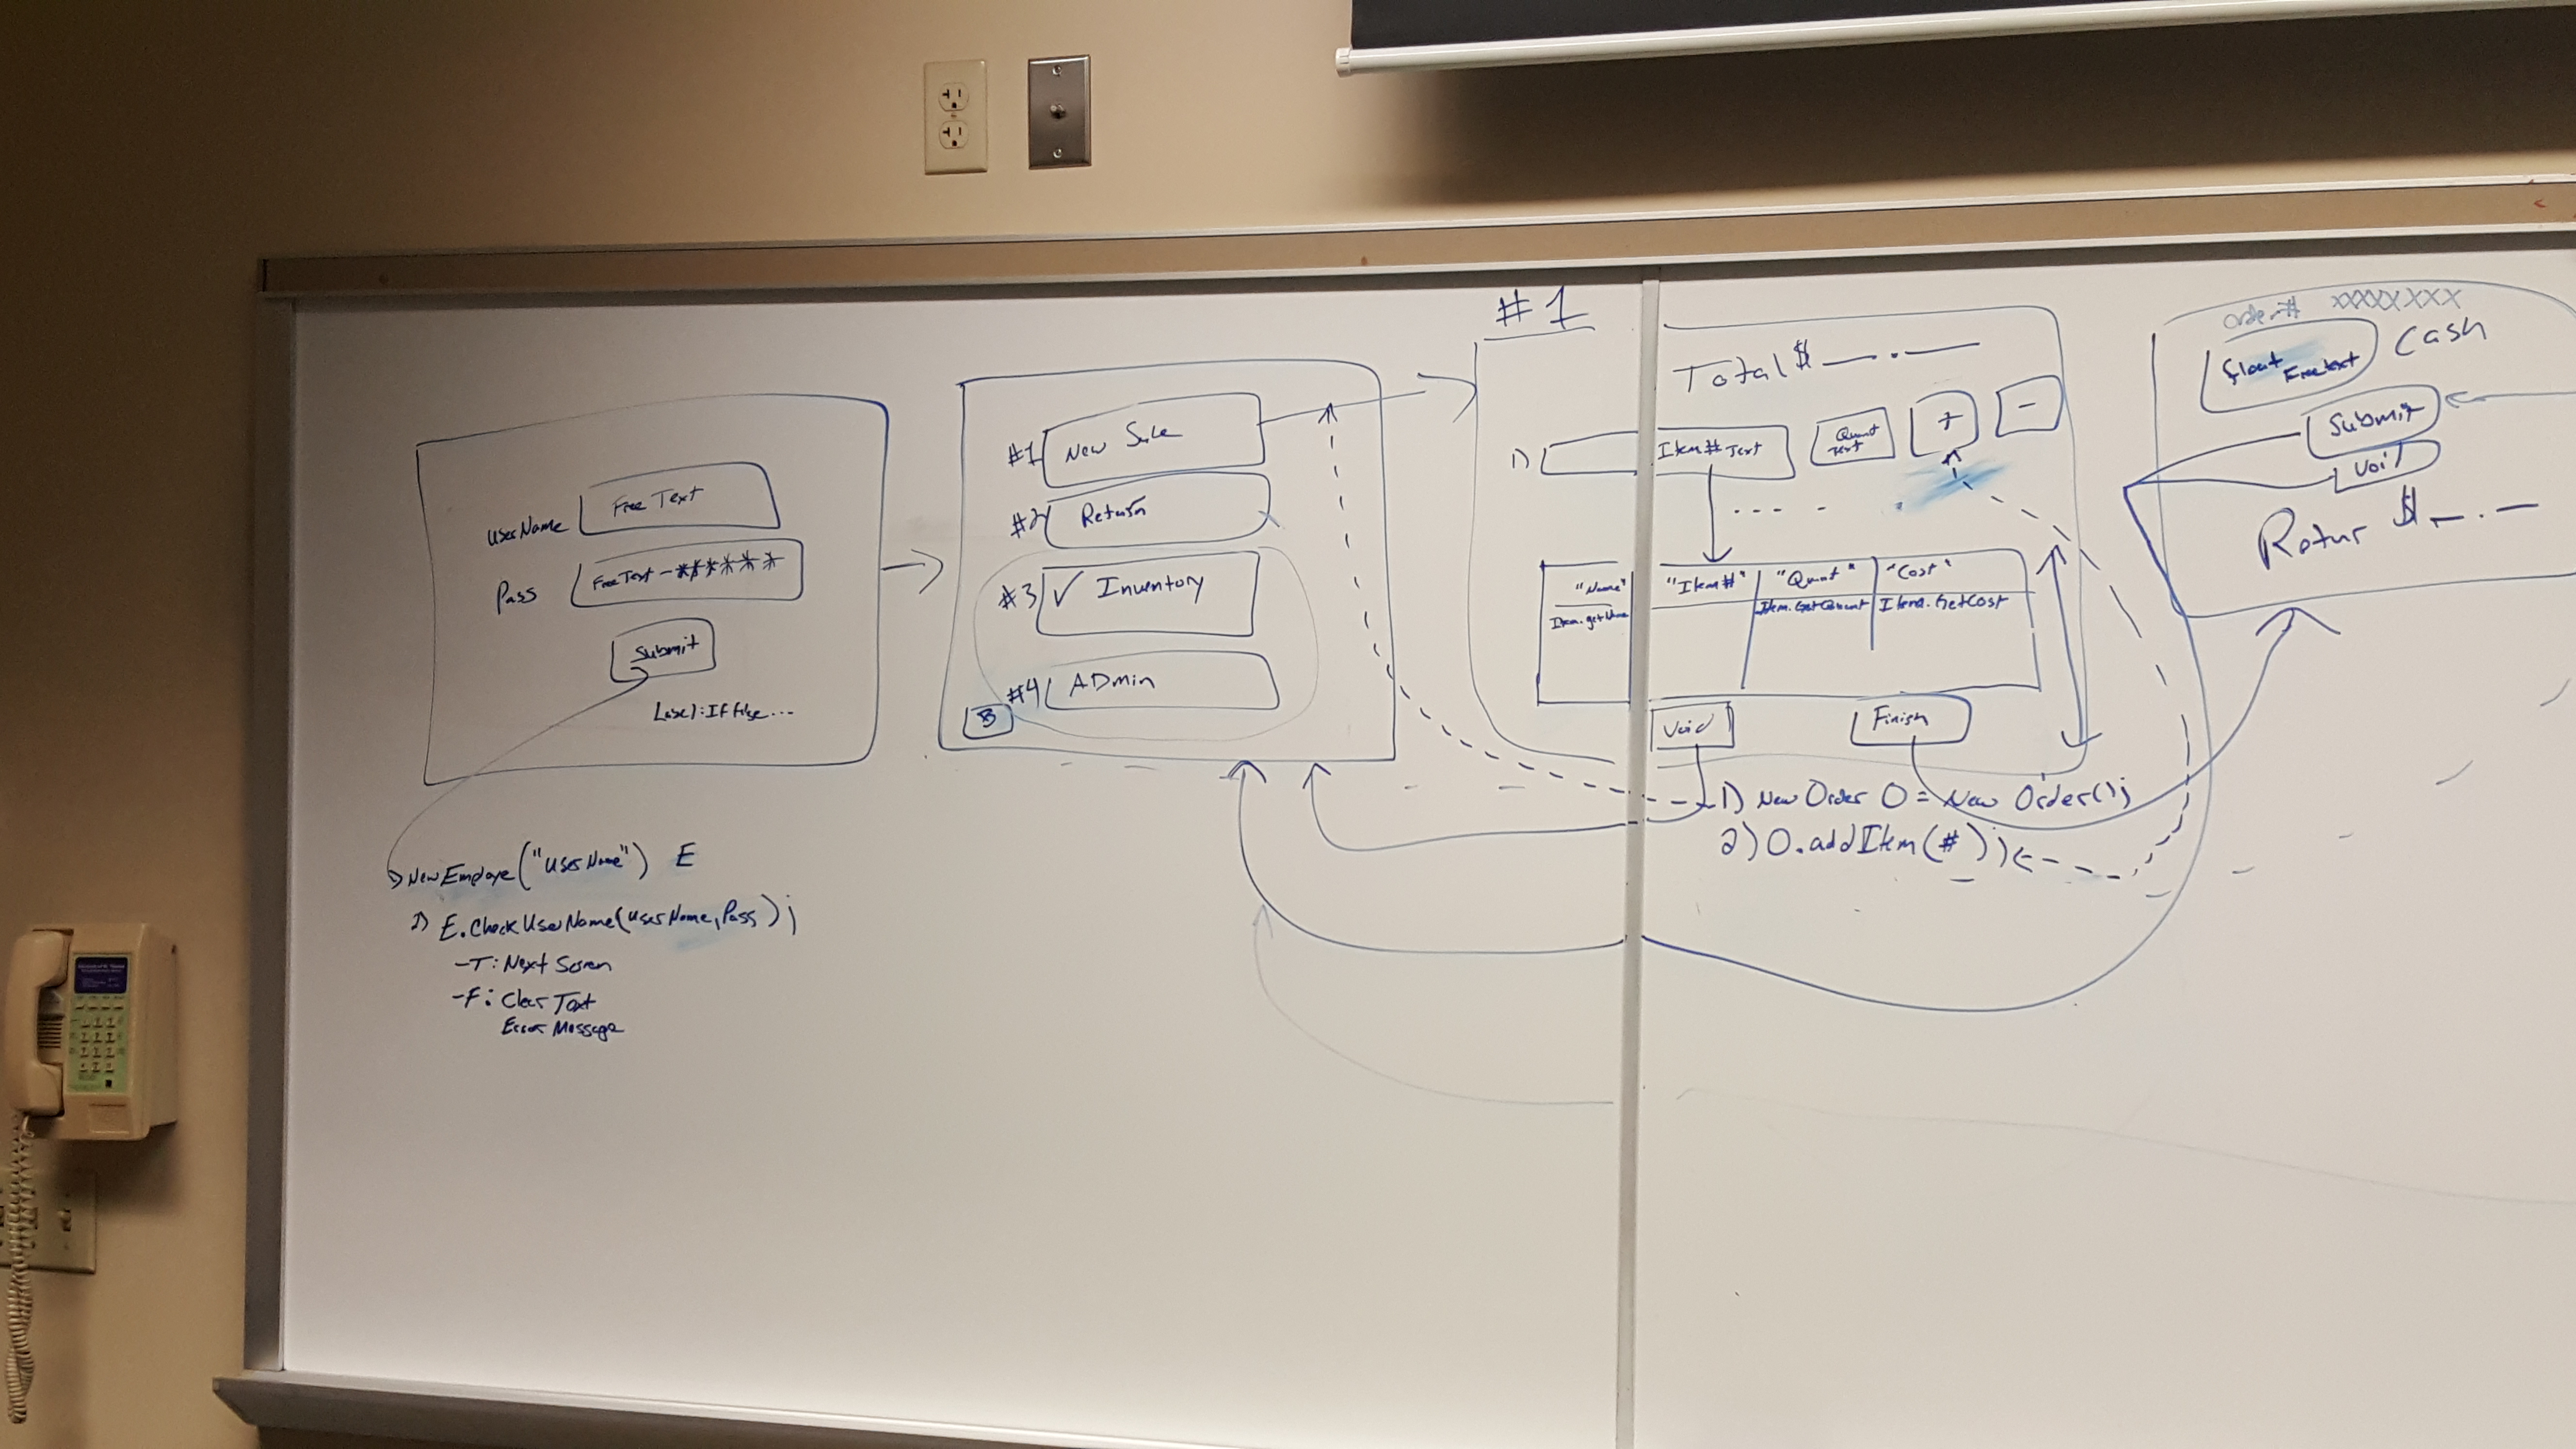 UserName
Free Text
Pass
Free Text - ******
Submit
Label: If false...
NewEmploye("UserName") E
2) E.CheckUserName(UserName, Pass);
-T: Next Screen
-F: Clear Text
Error Message
#1 New Sale
#2 Return
#3 ✓ Inventory
#4 ADmin
B
#1
Total $ __.__
1) Item# Text
Quant Text
+
-
"Name" "Item#" "Quant" "Cost"
Item.getName Item.GetQuant Item.GetCost
Void
Finish
1) New Order O = New Order();
2) O.addItem(#);
Order# XXXXXXXX
float FreeText
Cash
Submit
Void
Retur $__.__